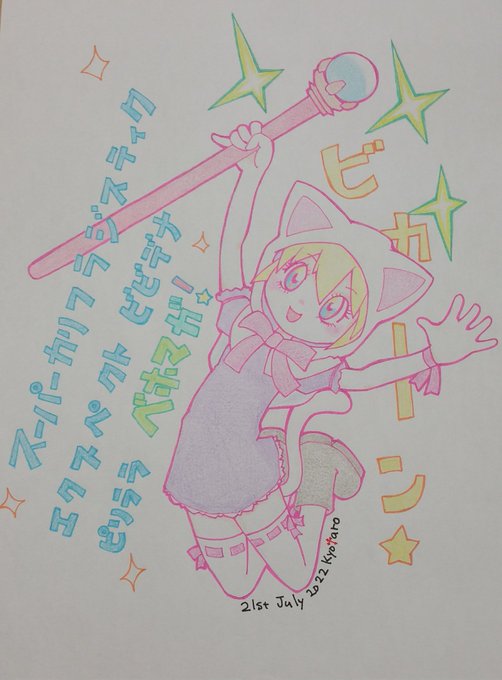 ビカーン☆
スーパーカリフラジスティク
エクスペクト ビビデナ
ピリララ ベホマガ!
21st July 2022 Kyotaro